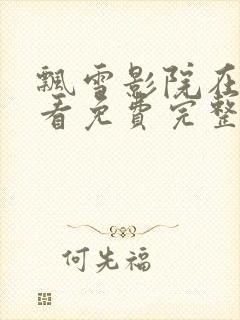 飘雪影院在
看免费完整
何先福